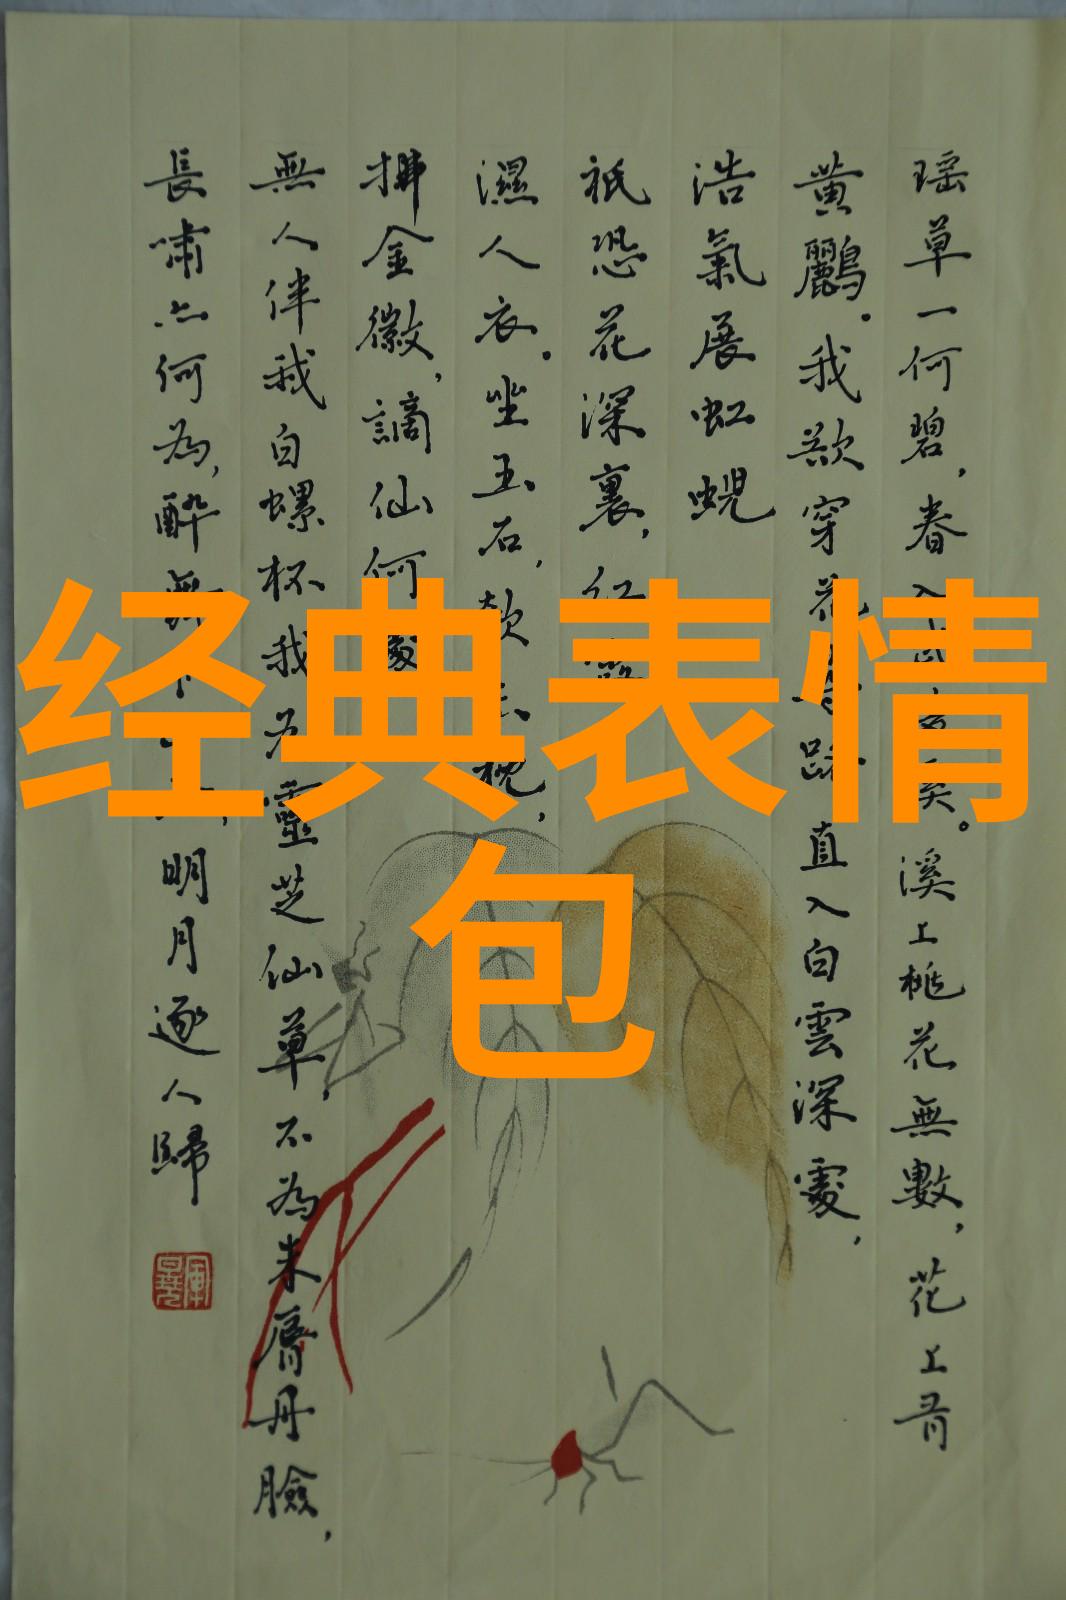 瑶草一何碧，春入溪。溪上桃花無數，花上有
黄鸝。我欲穿花路直入白雲深處，
浩氣展虹蜺
祇恐花深裏，紅露
濕人衣。坐玉石，欹玉枕，
拂金徽，謫仙何處
無人伴我白螺杯我为靈芝仙草，不為朱脣丹臉，
長嘯亦何為，醉舞下，明月逐人歸
经典表情
包